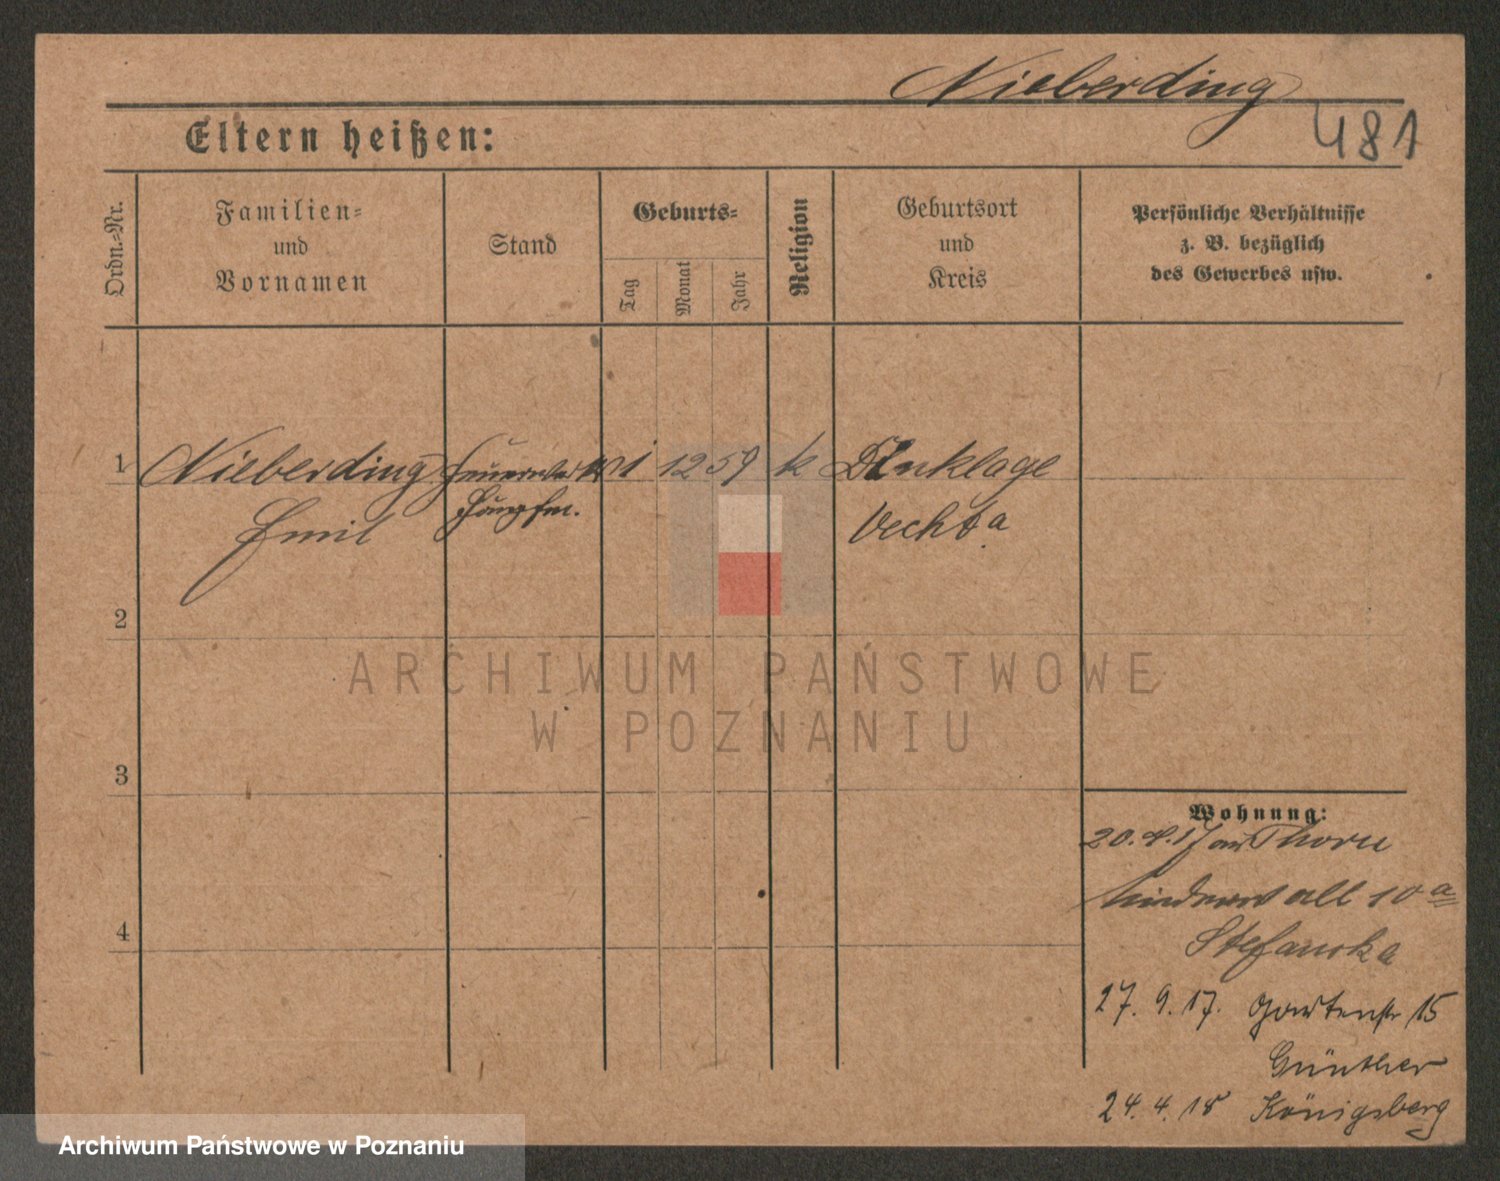 Nieberding
481
Eltern heißen:
Ordn.-Nr.
Familien-
und
Vornamen
Stand
Geburts-
Tag
Monat
Jahr
Religion
Geburtsort
und
Kreis
Persönliche Verhältnisse
z. B. bezüglich
des Gewerbes usw.
1 Nieberding Feuerwerks 1 12 59 k Dinklage
Emil Hauptm. Vechta
2
3
4
Wohnung:
20. 8. 17 Thorn
all 10a
Stefanska
27. 9. 17. Gartenstr 15
Günther
24. 4. 18 Königsberg
ARCHIWUM PAŃSTWOWE
W POZNANIU
Archiwum Państwowe w Poznaniu